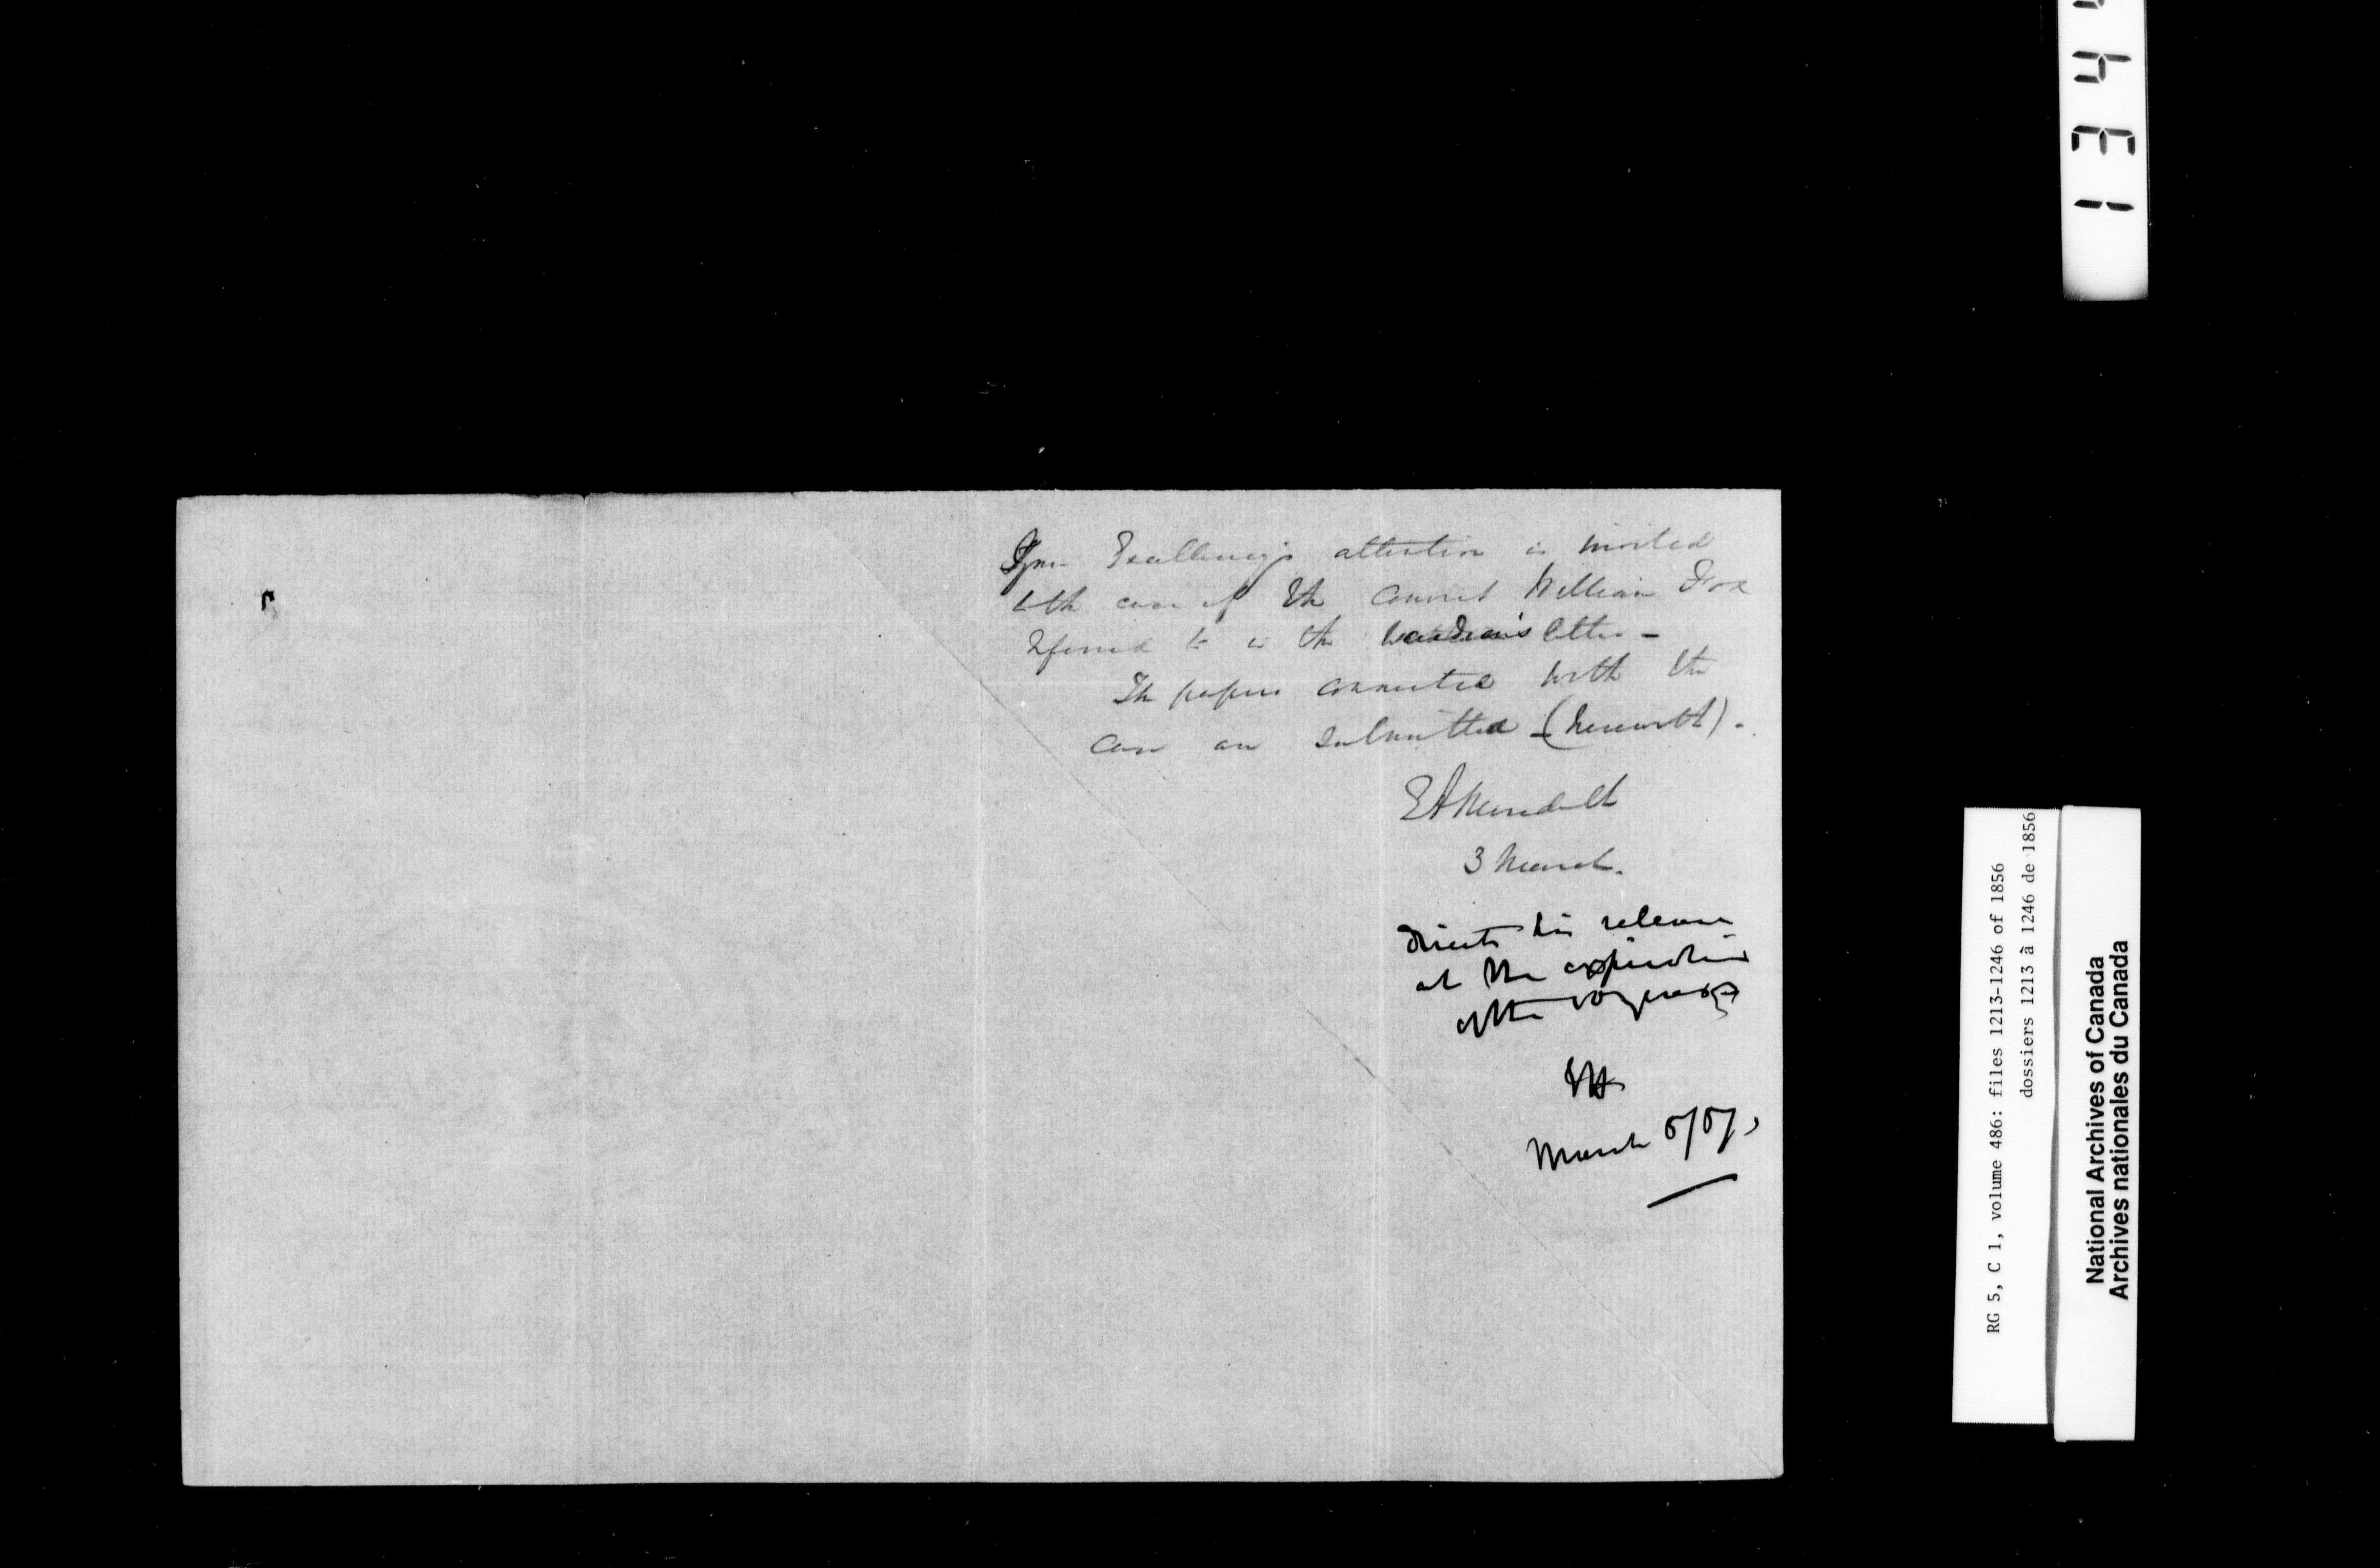 Your Excellency's attention is invited
to the case of the Convict William Fox
referred to in the Warden's letter —
The papers connected with the
case are submitted — (herewith) -
EA Meredith
3 March.
Direct his release
at the expiration
of the
March 5/57
1344
RG 5, C 1, volume 486: files 1213-1246 of 1856
dossiers 1213 à 1246 de 1856
National Archives of Canada
Archives nationales du Canada